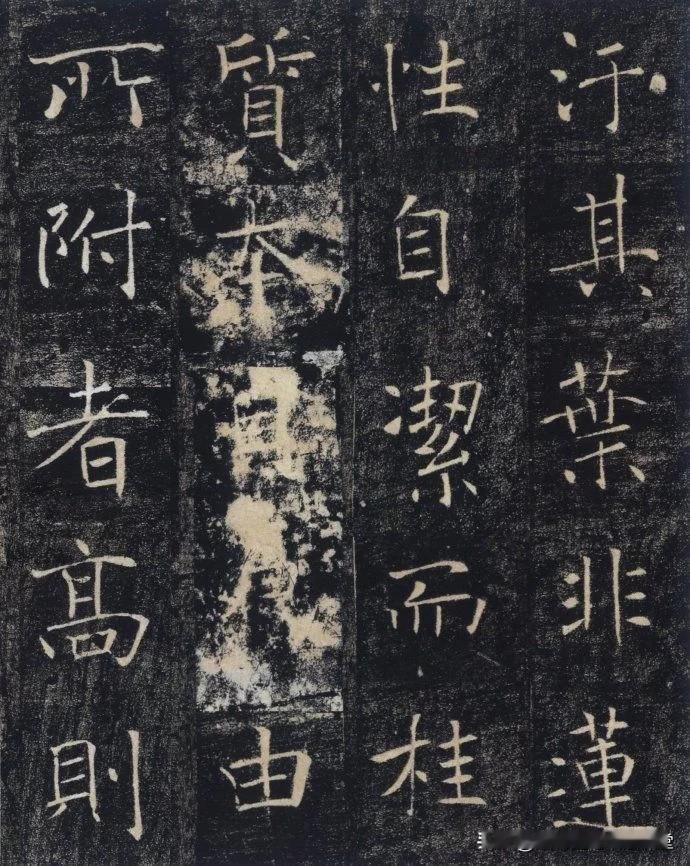 汙其葉非蓮
性自㓗而桂
質本由
所附者髙則